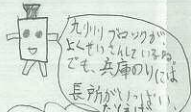 九州リブロックが
よくせいさんしているね。
でも、兵庫のりには
長所がいっぱい